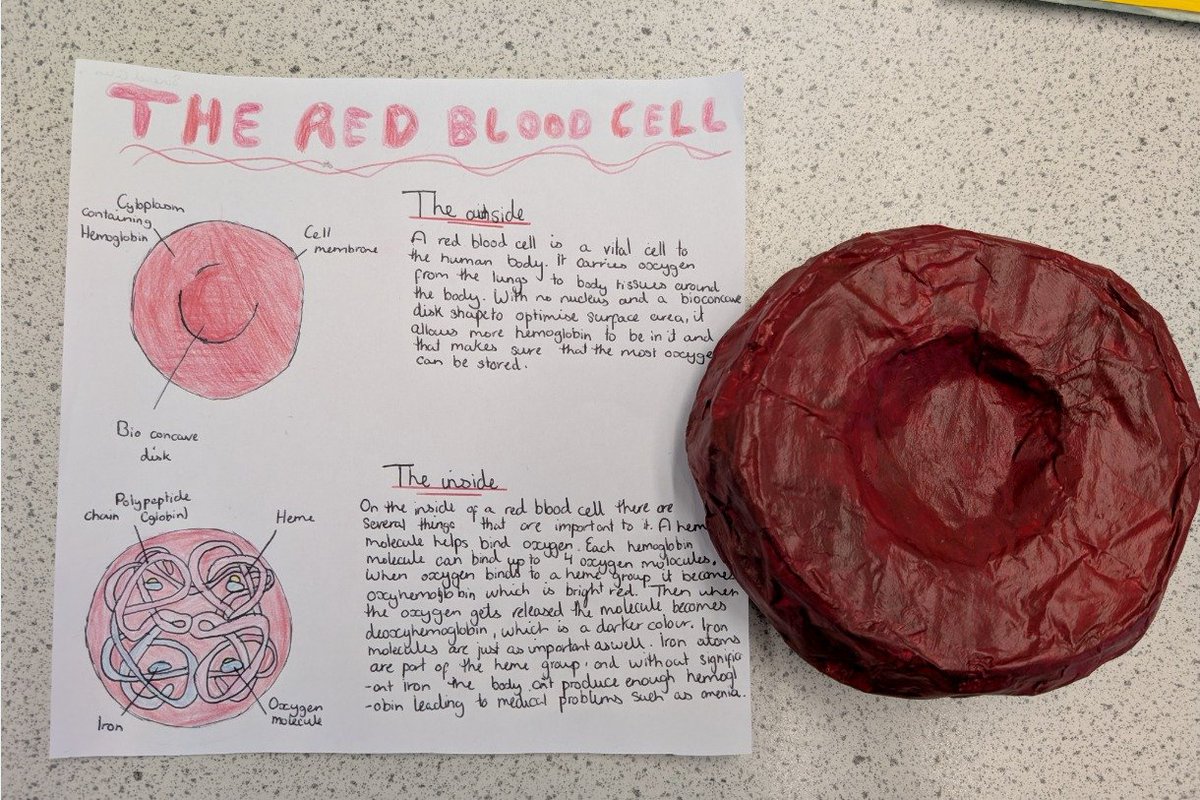 THE RED BLOOD CELL
Cytoplasm
containing
Hemoglobin
Cell
membrane
Bio concave
disk
The outside
A red blood cell is a vital cell to
the human body. It carries oxygen
from the lungs to body tissues around
the body. With no nucleus and a bioconcave
disk shape to optimise surface area, it
allows more hemoglobin to be in it and
that makes sure that the most oxyge
can be stored.
Polypeptide
chain (globin)
Heme
Iron
Oxygen
molecule
The inside
On the inside of a red blood cell there are
several things that are important to it. A hem
molecule helps bind oxygen. Each hemoglobin
molecule can bind up to 4 oxygen molocules.
When oxygen binds to a heme group it becomes
oxyhemoglobin which is bright red. Then when
the oxygen gets released the molecule becomes
deoxyhemoglobin, which is a darker colour. Iron
molecules are just as important aswell. Iron atoms
are part of the heme group, and without signific
-ant iron the body can't produce enough hemogl
-obin leading to medical problems such as anemia.